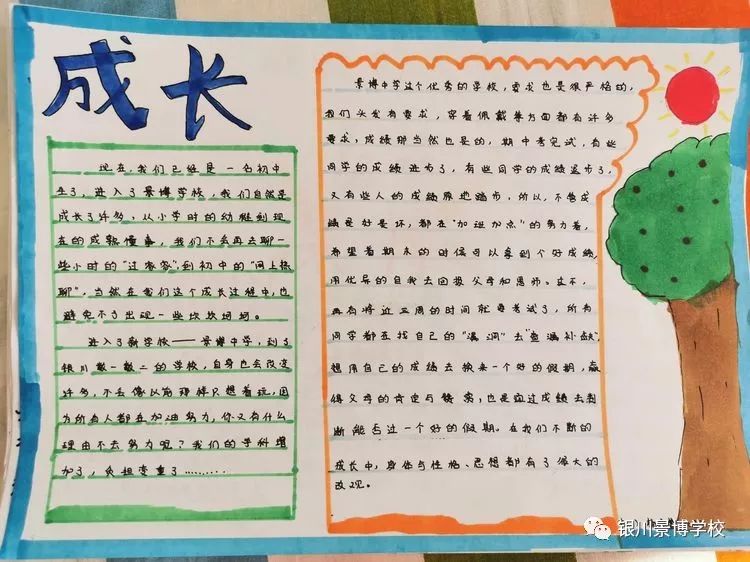 成长
现在,我们已经是一名初中
生了,进入了景博学校,我们自然是
成长了许多,从小学时的幼稚到现
在的成熟懂事,我们不会再去聊一
些小时的“过家家”到初中的“网上热
聊”,当然在我们这个成长过程中,也
避免不了出现一些坎坎坷坷。
进入了新学校——景博中学,到了
银川数一数二的学校,自身也会改变
许多,不会像以前那样只想着玩,因
为所有人都在加油努力,你又有什么
理由不去努力呢?我们的学科增
加了,负担变重了………
景博中学这个优秀的学校,要求也是很严格的,
我们头发有要求,穿着佩戴等方面都有许多
要求,成绩那当然也是的,期中考完试,有些
同学的成绩进步了,有些同学的成绩退步了,
又有些人的成绩原地踏步,所以,不管成
绩是好是坏,都在“加班加点”的努力着,
希望着期末的时候可以拿到个好成绩,
用优异的自我去回报父母和恩师。这不,
再有将近三周的时间就要考试了,所有
同学都在找自己的“漏洞”去“查漏补缺”,
想用自己的成绩去换来一个好的假期,赢
得父母的肯定与赞赏;也是通过成绩去判
断能否过一个好的假期。在我们不断的
成长中,身体与性格、思想都有了很大的
改观。
银川景博学校